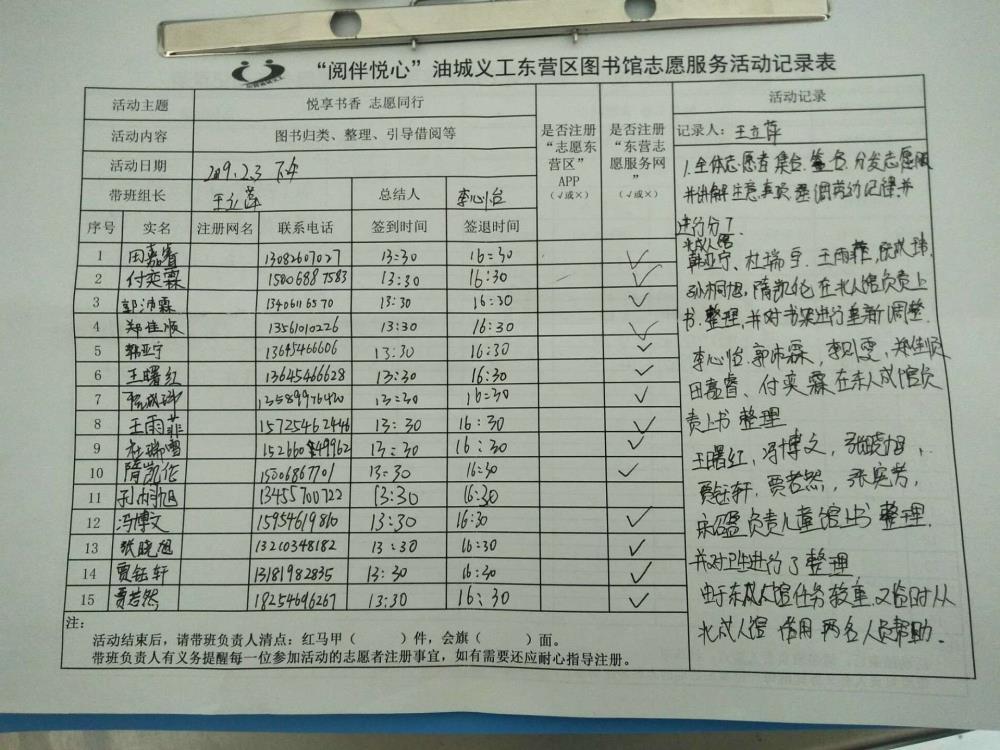 “阅伴悦心”油城义工东营区图书馆志愿服务活动记录表
活动主题 悦享书香 志愿同行
活动内容 图书归类、整理、引导借阅等
活动日期 2019.2.3 下午
带班组长 王立萍 总结人 李心怡
序号 实名 注册网名 联系电话 签到时间 签退时间
是否注册“志愿东营区”APP（√或×）
是否注册“东营志愿服务网”（√或×）
1 田嘉睿 13082607027 13:30 16:30 √
2 付奕霖 15006887583 13:30 16:30 √
3 郭沛霖 13406116570 13:30 16:30 √
4 郑佳顺 13561010226 13:30 16:30 √
5 韩亚宁 13645466606 13:30 16:30 √
6 王曙红 13645466628 13:30 16:30 √
7 13589976420 13:30 16:30 √
8 王雨菲 15725462446 13:30 16:30 √
9 杜瑞雪 13:30 16:30 √
10 隋凯伦 15006867701 13:30 16:30 √
11 13455700722 13:30 16:30
12 冯博文 15954619810 13:30 16:30 √
13 张晓旭 13210348182 13:30 16:30 √
14 贾钰轩 13181982835 13:30 16:30 √
15 贾若然 18254696267 13:30 16:30 √
注：
活动结束后，请带班负责人清点：红马甲（ ）件，会旗（ ）面。
带班负责人有义务提醒每一位参加活动的志愿者注册事宜，如有需要还应耐心指导注册。
活动记录
记录人：王立萍
1.全体志愿者集合.签名.分发志愿服
并讲解注意事项 强调劳动纪律并
进行分工
北成人馆
韩亚宁、杜瑞雪.王雨菲,
隋凯伦在北人馆负责上
书.整理,并对书架进行重新调整.
李心怡.郭沛霖,李则雯,郑佳顺
田嘉睿、付奕霖在东人成馆负
责上书 整理
王曙红,冯博文,张晓旭,
贾钰轩,贾若然,
负责儿童馆上书 整理.
并对卫生进行了整理
由于东成人馆任务较重,又临时从
北成人馆 借用两名人员帮助.